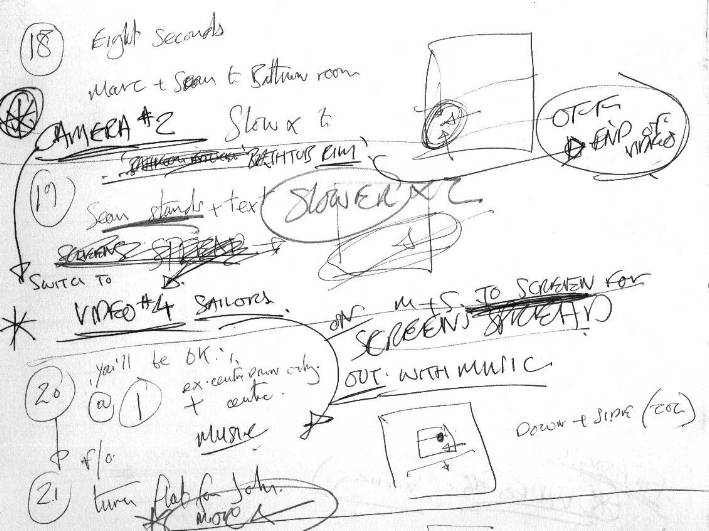 18 Eight Seconds
Marc + Sean to Bathroom room
CAMERA #2 Slow x to
BATHTUB RIM
END OF VIDEO
19 Sean stands + text
SLOWER x 2
SCREENS SPREAD
SWITCH TO
VIDEO #4 SAILORS
ON M + S. TO SCREEN FOR
SCREENS SPREAD
20 you'll be OK
@ 1
+ centre.
MUSIC
OUT WITH MUSIC
DOWN + SIDE
f/o
21 turn flat for John.
MOVE